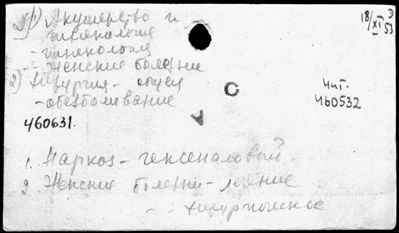 1) Акушерство и
гинекология
- гинекология
- Женские болезни
2) Хирургия - общая
- обезболивание
18/XI 53
Чит.
460532
460631.
1. Наркоз - гексеналовый
2. Женские болезни - лечение
- - хирургическое